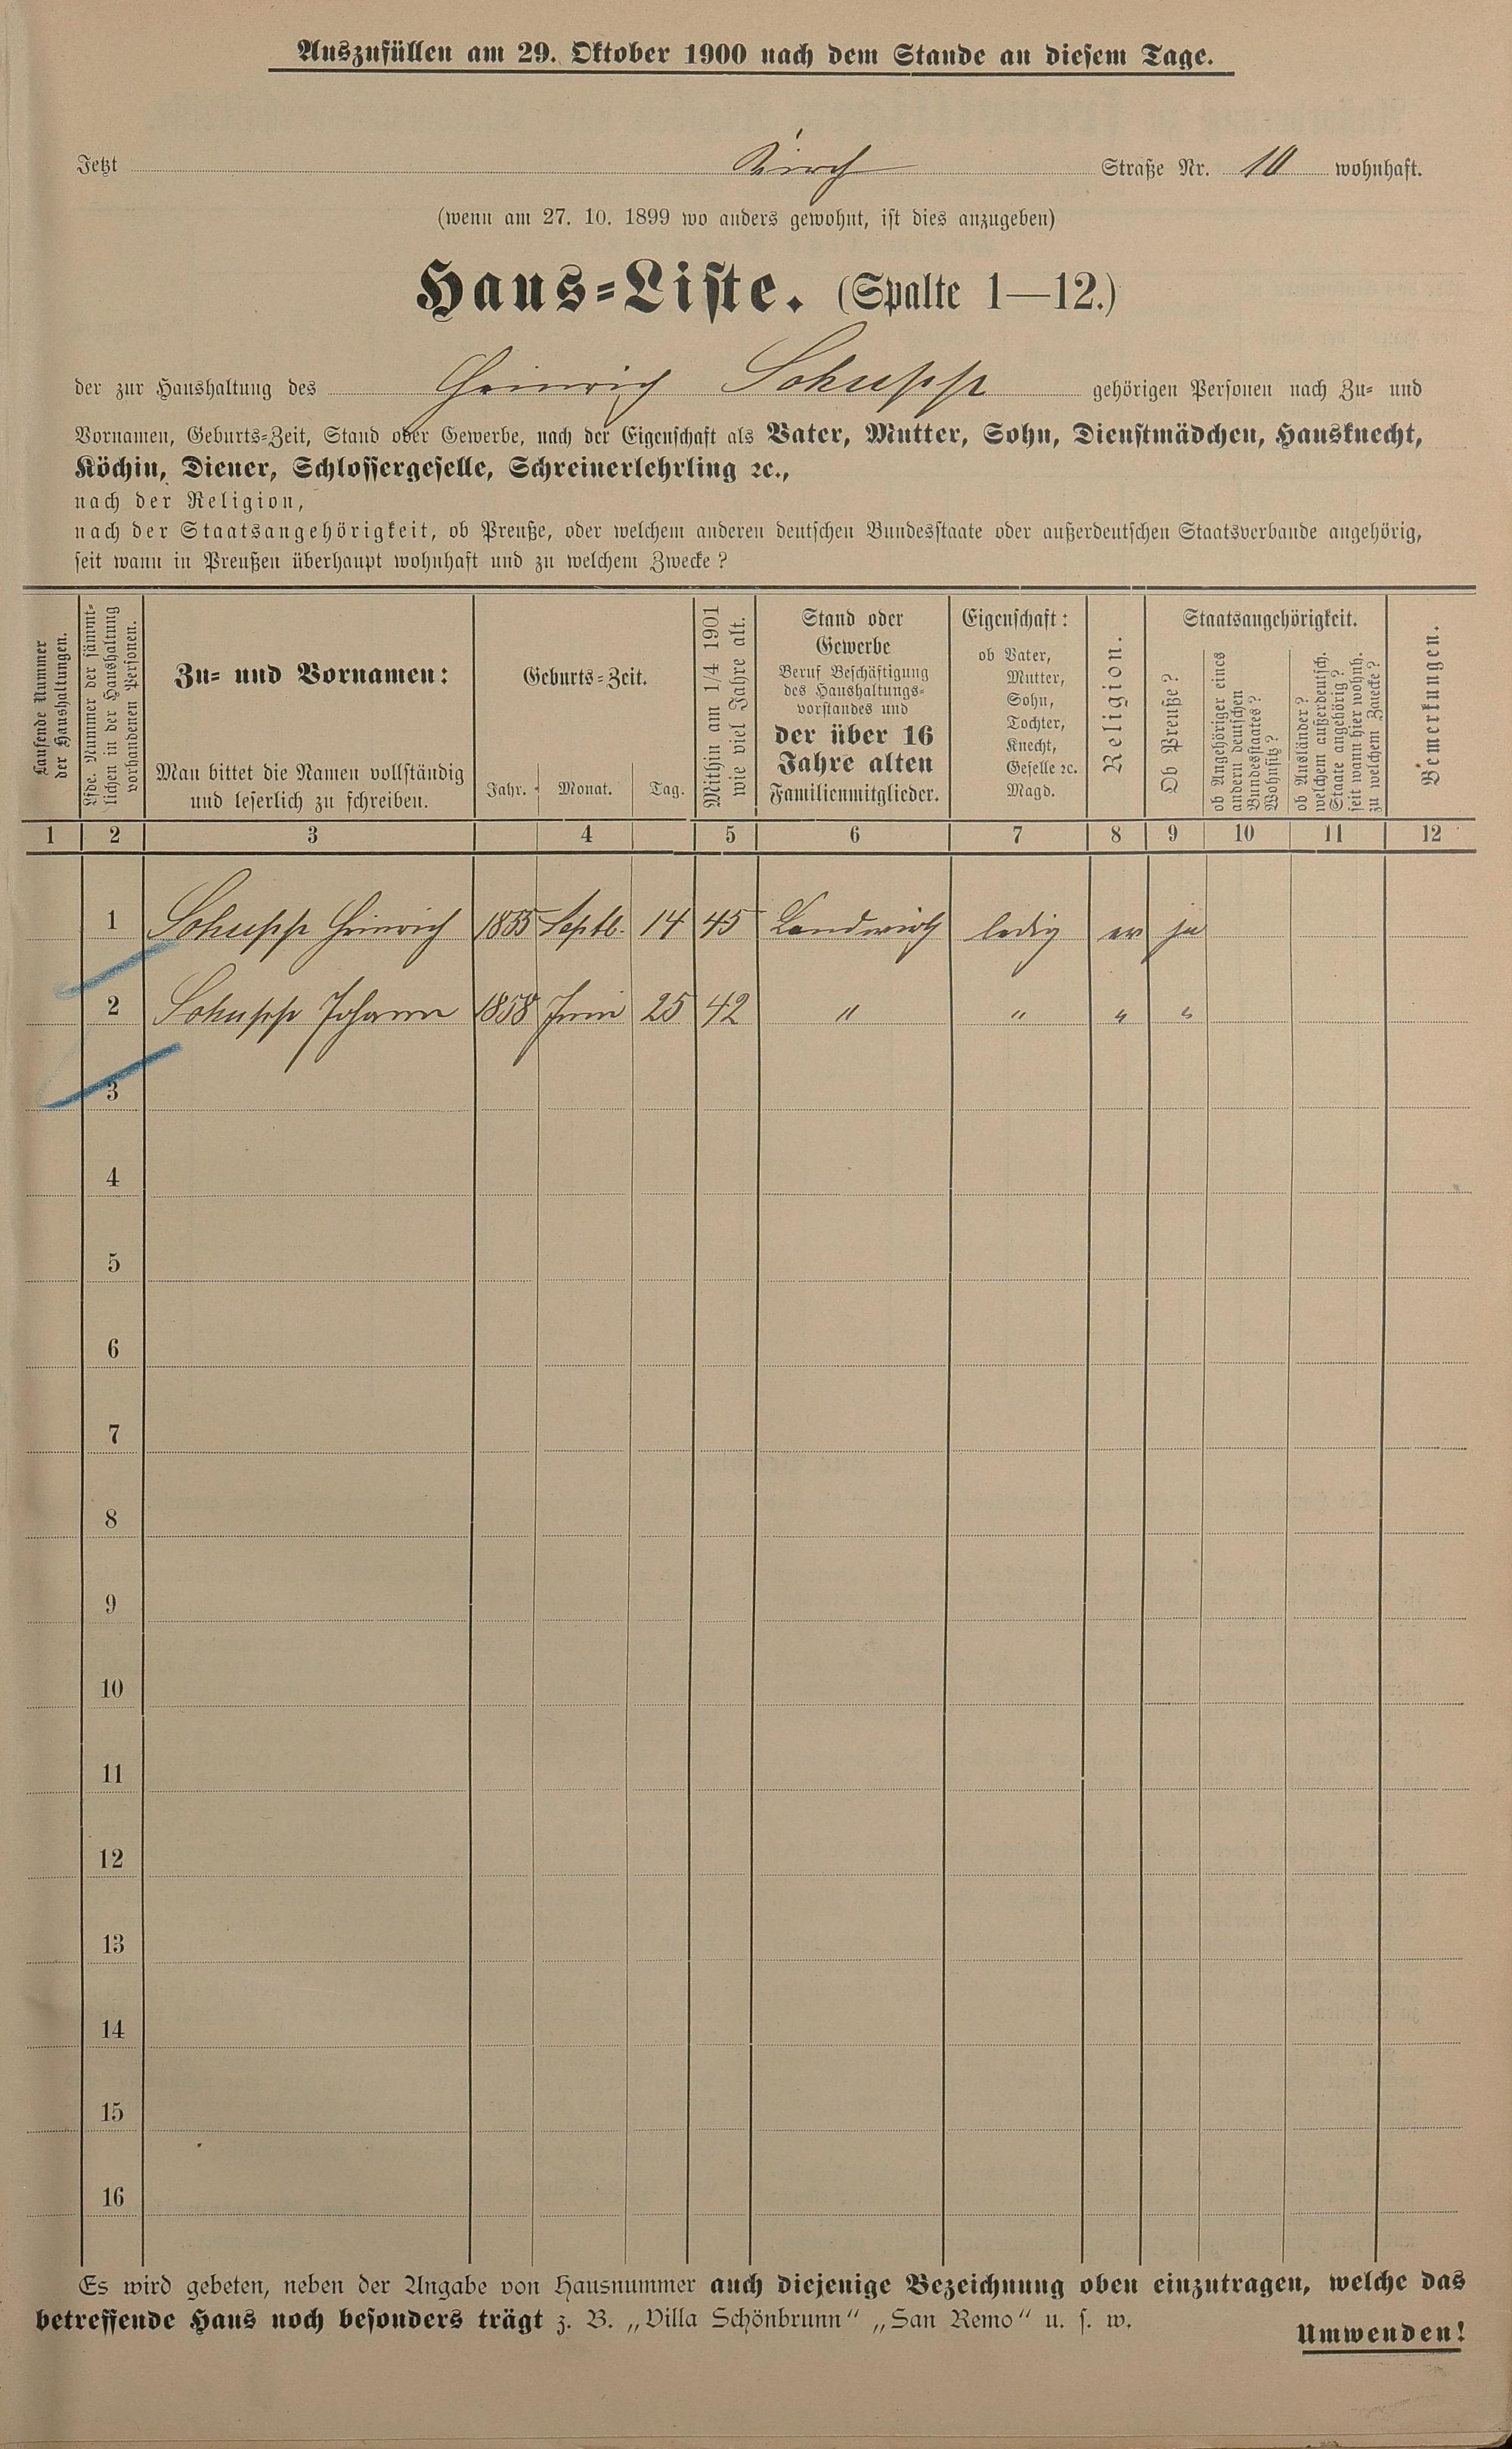 Auszufüllen am 29. Oktober 1900 nach dem Stande an diesem Tage.
Jetzt Kirch Straße Nr. 10 wohnhaft.
(wenn am 27. 10. 1899 wo anders gewohnt, ist dies anzugeben)
Haus=Liste. (Spalte 1—12.)
der zur Haushaltung des Heinrich Schupp gehörigen Personen nach Zu= und
Vornamen, Geburts=Zeit, Stand oder Gewerbe, nach der Eigenschaft als Vater, Mutter, Sohn, Dienstmädchen, Hausknecht,
Köchin, Diener, Schlossergeselle, Schreinerlehrling ꝛc.,
nach der Religion,
nach der Staatsangehörigkeit, ob Preuße, oder welchem anderen deutschen Bundesstaate oder außerdeutschen Staatsverbande angehörig,
seit wann in Preußen überhaupt wohnhaft und zu welchem Zwecke?
Laufende Nummer
der Haushaltungen.
Lfde. Nummer der sämmt=
lichen in der Haushaltung
vorhandenen Personen.
Zu= und Vornamen:
Man bittet die Namen vollständig
und leserlich zu schreiben.
Geburts=Zeit.
Jahr. Monat. Tag.
Mithin am 1/4 1901
wie viel Jahre alt.
Stand oder
Gewerbe
Beruf Beschäftigung
des Haushaltungs=
vorstandes und
der über 16
Jahre alten
Familienmitglieder.
Eigenschaft:
ob Vater,
Mutter,
Sohn,
Tochter,
Knecht,
Geselle ꝛc.
Magd.
Religion.
Staatsangehörigkeit.
Ob Preuße?
ob Angehöriger eines
andern deutschen
Bundesstaates?
Wohnsitz?
ob Ausländer?
welchem außerdeutsch.
Staate angehörig?
seit wann hier wohnh.
zu welchem Zwecke?
Bemerkungen.
1 2 3 4 5 6 7 8 9 10 11 12
1 Schupp Heinrich 1855 Septb. 14 45 Landwirth ledig ev ja
2 Schupp Johann 1858 Juni 25 42 " " " "
3
4
5
6
7
8
9
10
11
12
13
14
15
16
Es wird gebeten, neben der Angabe von Hausnummer auch diejenige Bezeichnung oben einzutragen, welche das
betreffende Haus noch besonders trägt z. B. „Villa Schönbrunn" „San Remo" u. s. w.
Umwenden!